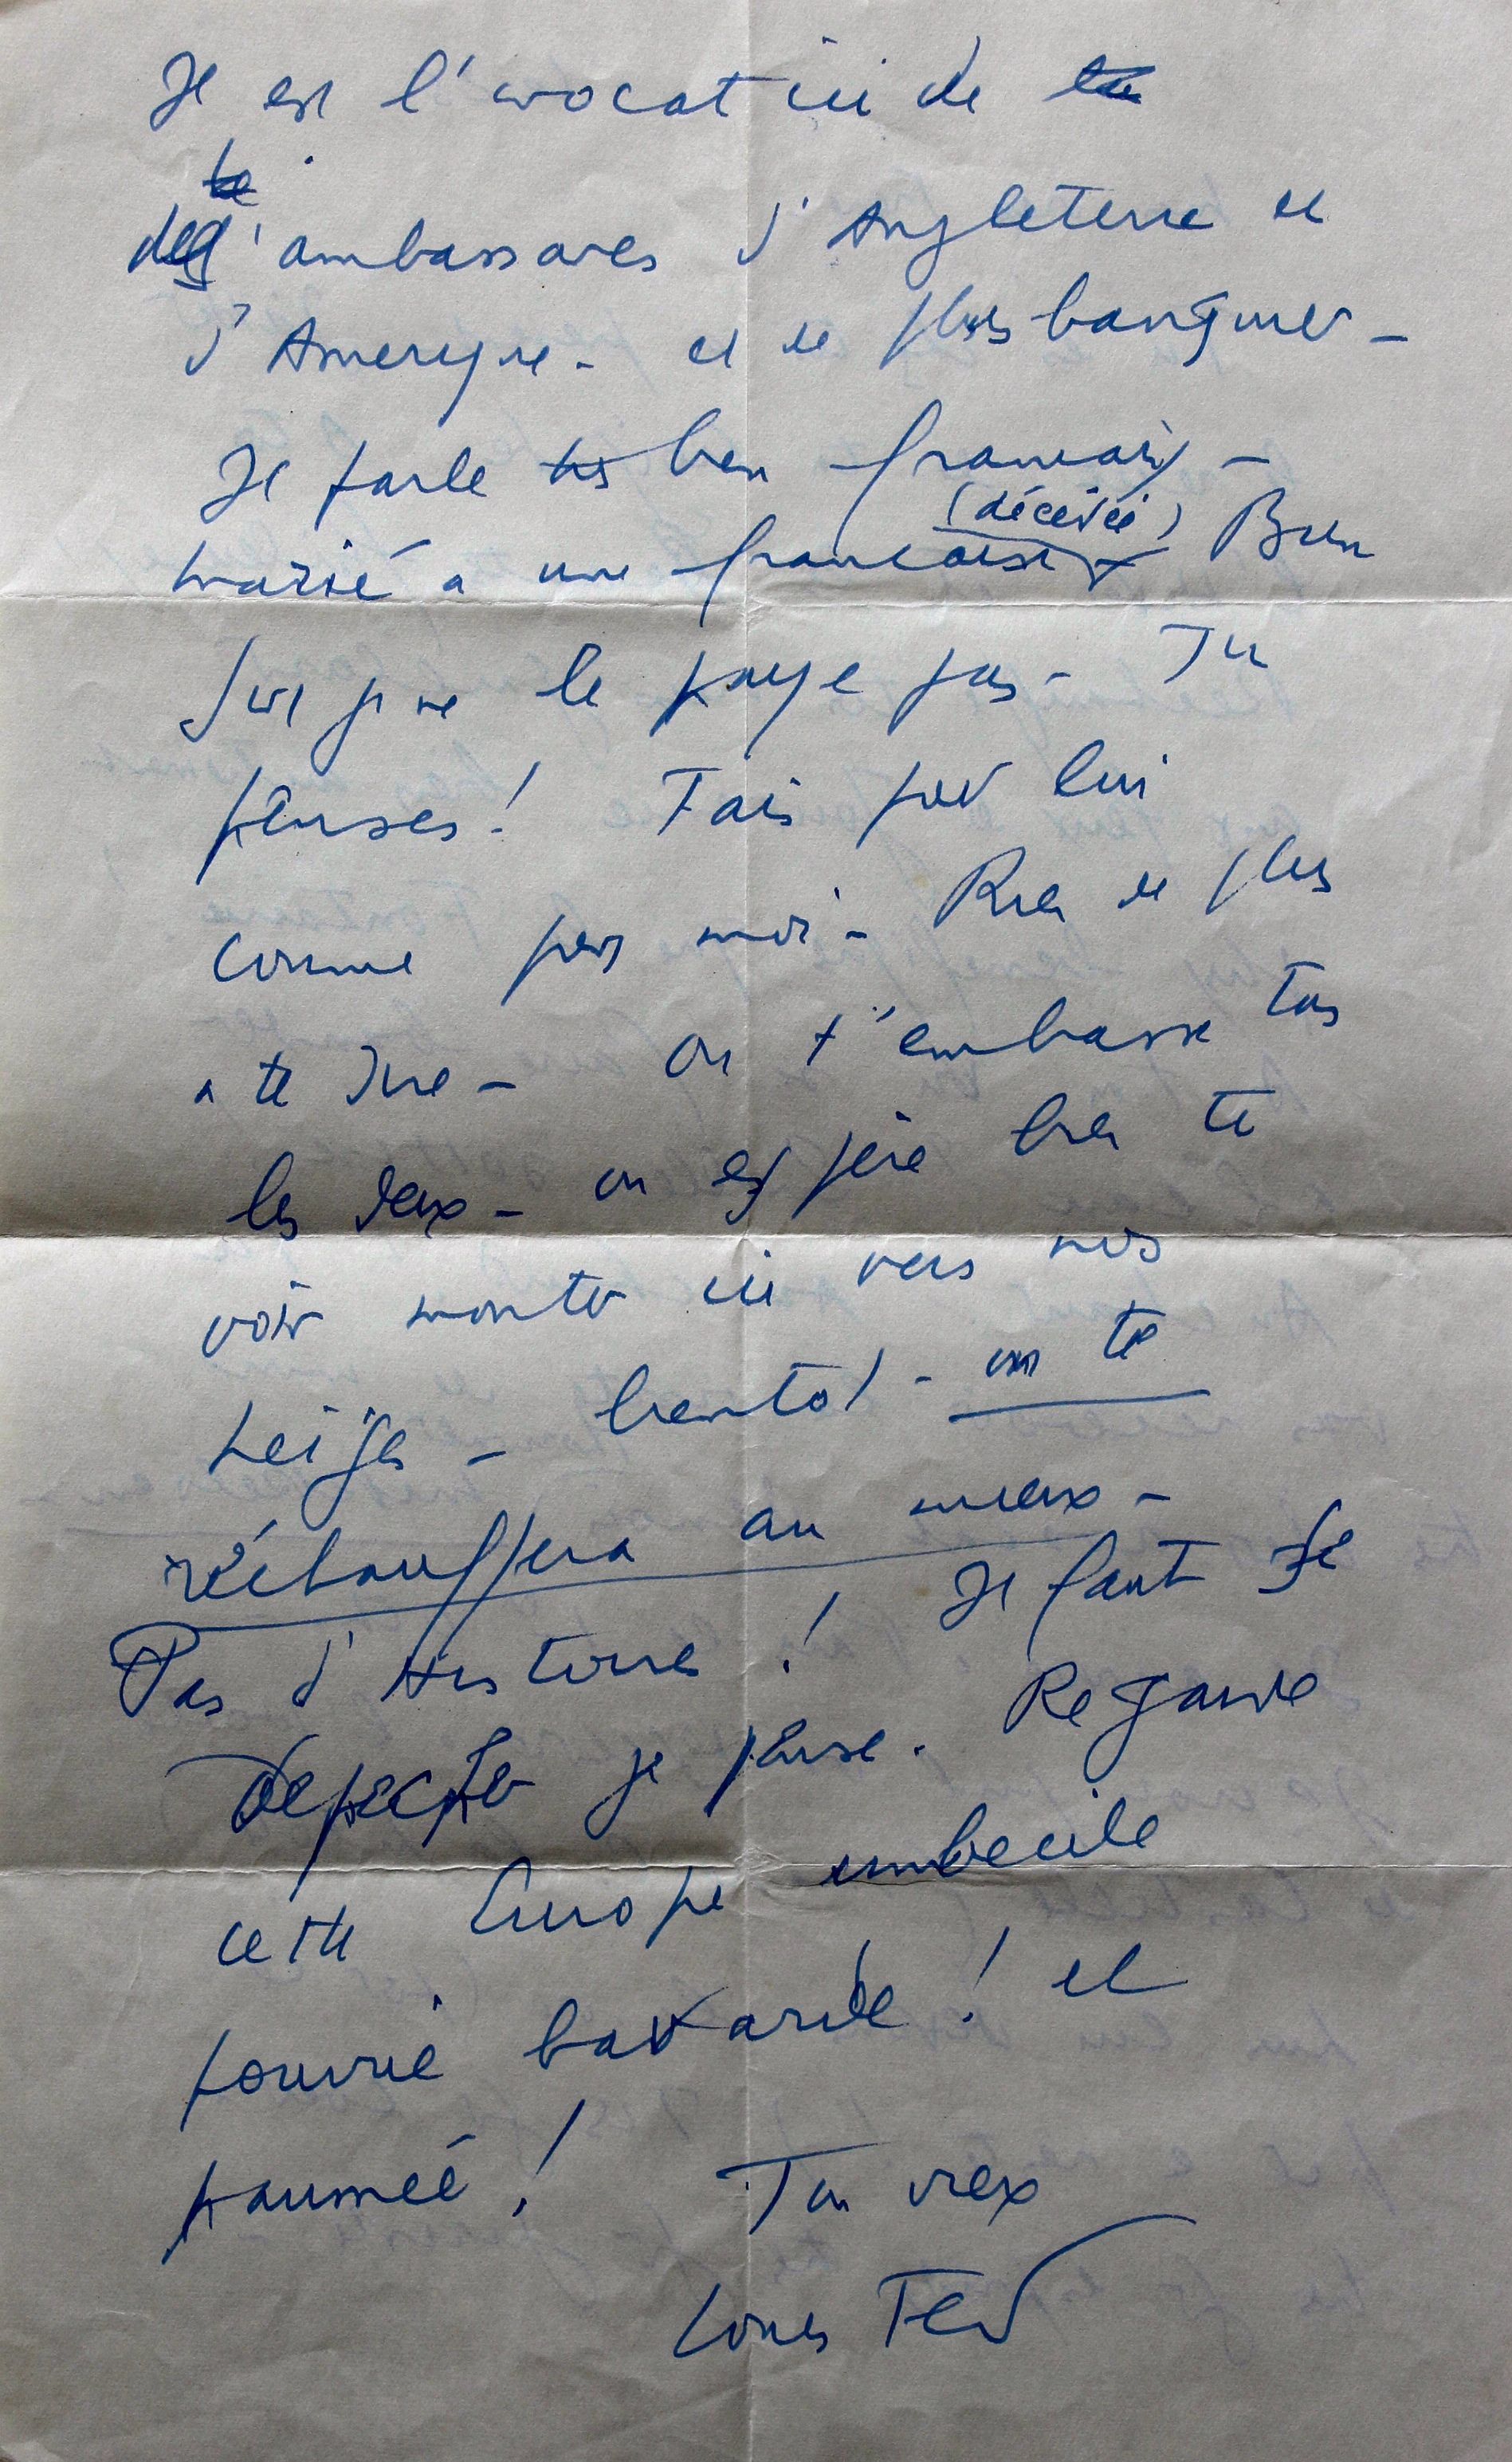 Il est l'avocat ici de la
le
des ambassades d'Angleterre et
d'Amerique - et de plus banquier -
Il parle très bien francais -
(décédée)
marié a une francaise Bien
sur je ne le paye pas - Tu
penses! Fais pour lui
comme pour moi - Rien de plus
a te dire - On t'embrasse tous
les deux - on espère bien te
voir monter ici vers nos
neiges - bientot - on te
réchauffera au mieux -
Pas d'Histoires! Il faut se
depecher je pense. Regarde
cette Europe imbecile
pourrie bavarde! et
paumée! Ton vieux
Louis Ferd